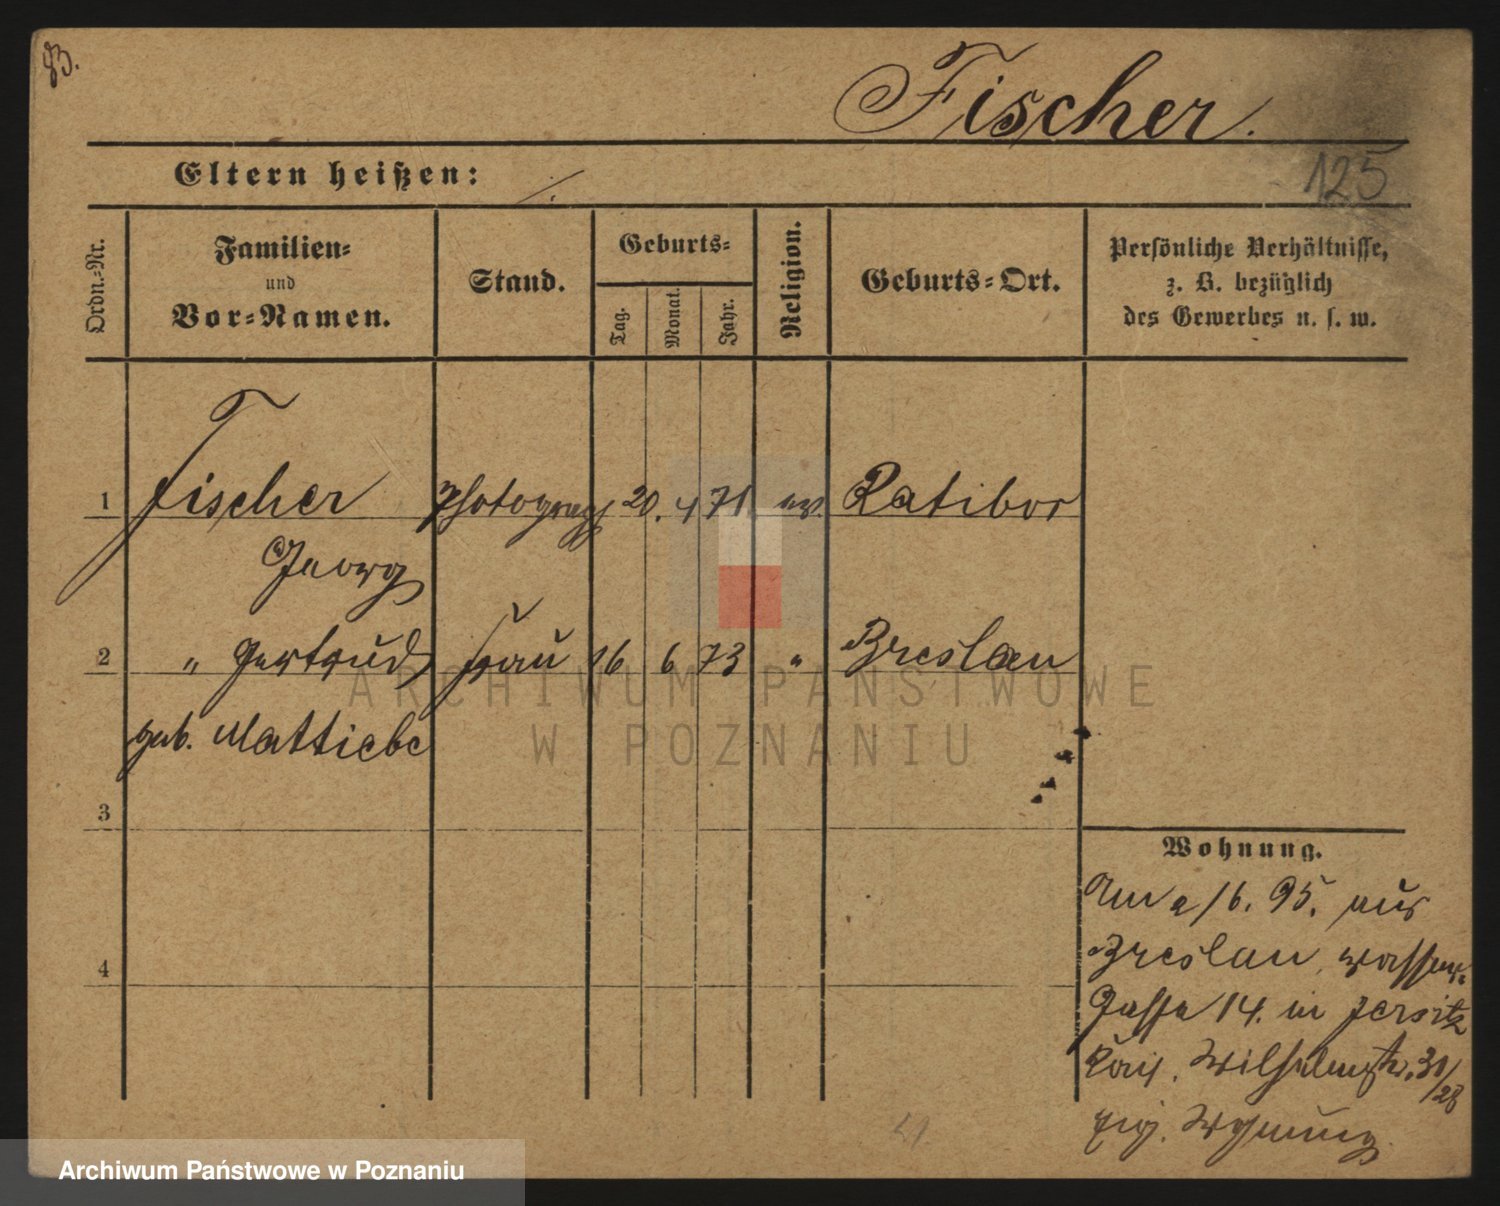 Fischer.
125
Eltern heißen: ./.
Ordn.-Nr.
Familien-
und
Vor-Namen.
Stand.
Geburts-
Tag.
Monat.
Jahr.
Religion.
Geburts-Ort.
Persönliche Verhältnisse,
z. B. bezüglich
des Gewerbes u. s. w.
1 Fischer Photograph 20. 4 71. ev. Ratibor
Georg
2 " Gertrud Frau 16 6 73 " Breslau
geb. Mattiebe
3
Wohnung.
Am 2/6. 95. aus
Breslau, Wasser-
4
Gasse 14. in Jersitz
Kais. Wilhelmstr. 30/28
eig. Wohnung.
ARCHIWUM PAŃSTWOWE
W POZNANIU
Archiwum Państwowe w Poznaniu